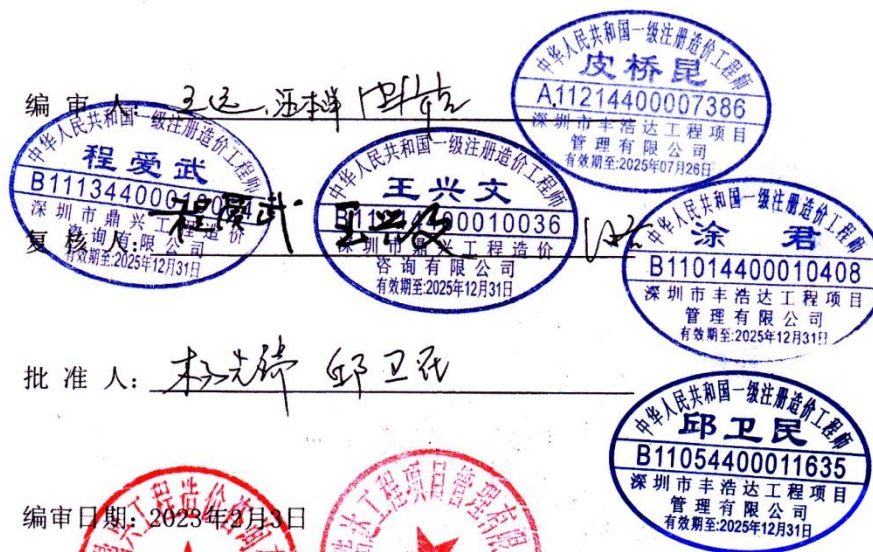 中华人民共和国一级注册造价工程师
皮桥昆
A11214400007386
深圳市丰浩达工程项目
管理有限公司
有效期至:2025年07月26日
编审人:王远
中华人民共和国一级注册造价工程师
程爱武
深圳市鼎兴工程造价
咨询有限公司
有效期至:2025年12月31日
中华人民共和国一级注册造价工程师
王兴文
深圳市鼎兴工程造价
咨询有限公司
有效期至:2025年12月31日
复核人:程爱武 王兴文
中华人民共和国一级注册造价工程师
涂君
B11014400010408
深圳市丰浩达工程项目
管理有限公司
有效期至:2025年12月31日
批准人: 邱卫民
中华人民共和国一级注册造价工程师
邱卫民
B11054400011635
深圳市丰浩达工程项目
管理有限公司
有效期至:2025年12月31日
编审日期:2023年2月3日
兴工程造价咨询有
浩达工程项目管理有限